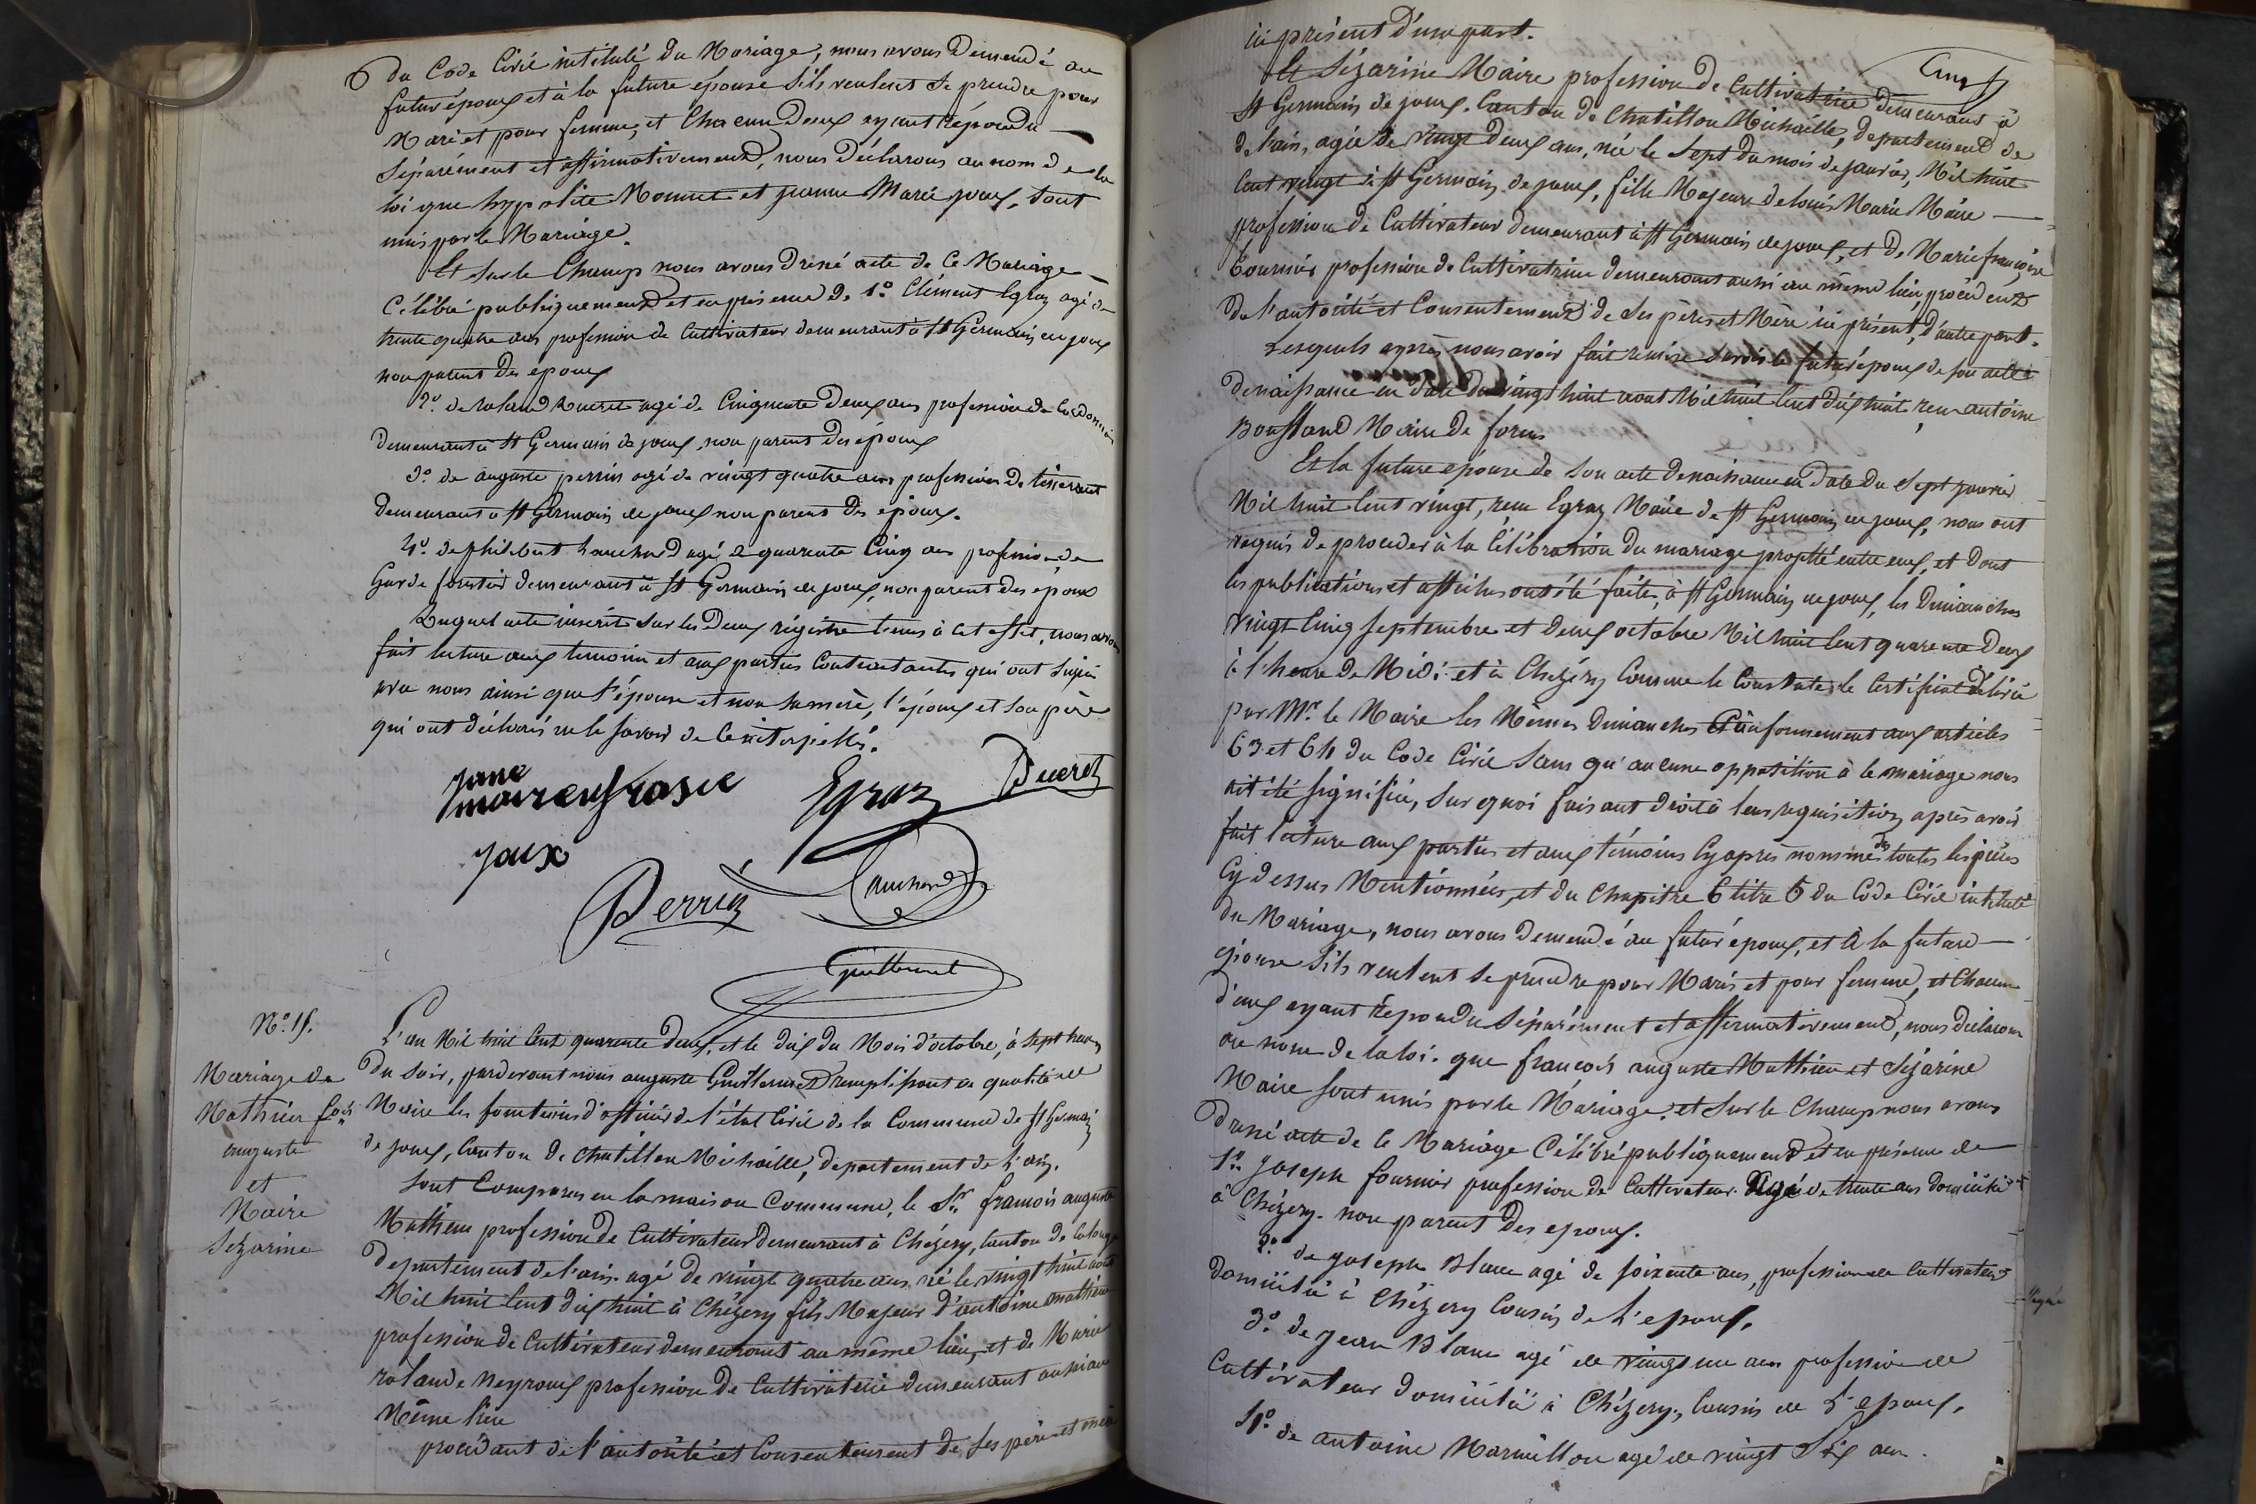 du Code Civil intitulé du Mariage, nous avons demandé au
futur époux et à la future épouse s'ils veulent se prendre pour
Mari et pour femme, et Chacun d'eux ayant répondu
séparément et affirmativement, nous déclarons au nom de la
loi que hypolite Monnet et jeanne Marie joux, sont
unis par le Mariage.
Et sur le Champ nous avons dressé acte de Ce Mariage
Célébré publiquement et en présence de 1.o Clément Egraz agé de
trente quatre ans profession de Cultivateur demeurant à St Germain de joux
non parent des époux
2.o de roland Ducret agé de Cinquante deux ans profession de Cordonnier
demeurant à St Germain de joux, non parent des époux
3.o de auguste perrin agé de vingt quatre ans profession de tisserant
demeurant à St Germain de joux non parent des époux.
4.o de philibert hauchard agé de quarante Cinq ans profession de
Garde forestier demeurant à St Germain de joux, non parent des époux
Duquel acte inscrit sur les deux régistre tenus à Cet effet, nous avons
fait lecture aux temoins et aux parties Contractantes qui ont signé
avec nous ainsi que l'épouse et non sa mère, l'époux et son père
qui ont déclaré ne le savoir de Ce interpellés.
jane
maireeufrasie
joux
Egraz
Ducret
Perrin
Guillermet
N.o 15.
Mariage de
Mathieu fois
auguste
et
Maire
Sézarine
L'an Mil huit Cent quarante deux, et le dix du Mois d'octobre, à sept heures
du soir, pardevant nous auguste Guillermet remplissant en qualité de
Maire les fonctions d'officier de l'état Civil de la Commune de St Germain
de joux, Canton de Chatillon Michaille, departement de l'ain.
sont Comparus en la maison Commune, le Sr françois auguste
Mathieu profession de Cultivateur demeurant à Chézery, Canton de Colonges
departement de l'ain. agé de vingt quatre ans, né le vingt huit août
Mil huit Cent dix huit à Chézery fils Majeur d'antoine mathieu
profession de Cultivateur demeurant au même lieu, et de Marie
rolande Neyroux profession de Cultivatrice demeurant aussi au
Même lieu
procédant de l'autorité et Consentement de ses père et mère
ici présent d'une part.
Cinq
Et Sézarine Maire profession de Cultivatrice demeurant à
St Germain de joux. Canton de Chatillon Michaille, departement de
de l'ain, agée de vingt deux ans, née le sept du mois de janvier, Mil huit
Cent vingt à St Germain de joux, fille Majeure de louis Marie Maire
profession de Cultivateur demeurant à St Germain de joux, et de Marie françoise
tournier profession de Cultivatrice demeurant aussi au même lieu, procédent
de l'autorité et Consentement de ses père et Mère ici présent, d'autre part.
Lesquels après nous avoir fait remise savoir le futur époux de son acte
de naissance en date du vingt huit aout Mil huit Cent dix huit, reçu antoine
Bouffand Maire de forens
Et la future épouse de son acte de naissance en date du sept janvier
Mil huit Cent vingt, reçu Egraz Maire de St Germain de joux, nous ont
requis de procéder à la Célébration du mariage projetté entre eux, et dont
les publications et affiches ont été faites, à St Germain de joux, les Dimanches
vingt Cinq septembre et deux octobre Mil huit Cent quarante deux
à l'heure de Midi. et à Chézery Comme le Constate le Certificat délivré
par Mr. le Maire les Mêmes Dimanches Conformement aux articles
63 et 64 du Code Civil sans qu'aucune opposition à le mariage nous
ait été signifiée, sur quoi faisant droit à leur requisition après avoir
fait lecture aux parties et aux témoins Cy après nommés de toutes les pièces
Cy dessus Mentionnées, et du chapitre 6 titre 5 du Code Civil intitulé
du Mariage, nous avons demandé au futur époux, et à la future
épouse s'ils veulent se prendre pour Mari et pour femme, et Chacun
d'eux ayant répondu séparément et affirmativement, nous déclarons
au nom de la loi. que françois auguste Mathieu et Sézarine
Maire sont unis par le Mariage. et sur le Champ nous avons
dressé acte de Ce Mariage Célébré publiquement et en présence de
1.o joseph fournier profession de Cultivateur. âgé de trente ans domicilié
à Chézery. non parent des époux.
2.o de joseph Blanc agé de soixente ans, profession de Cultivateur
domicilié à Chézery Cousin de l'époux.
3.o de jean Blanc agé de vingt un ans profession de
Cultivateur domicilié à Chézery, Cousin de l'époux.
4.o de antoine Marmillon agé de vingt six ans.